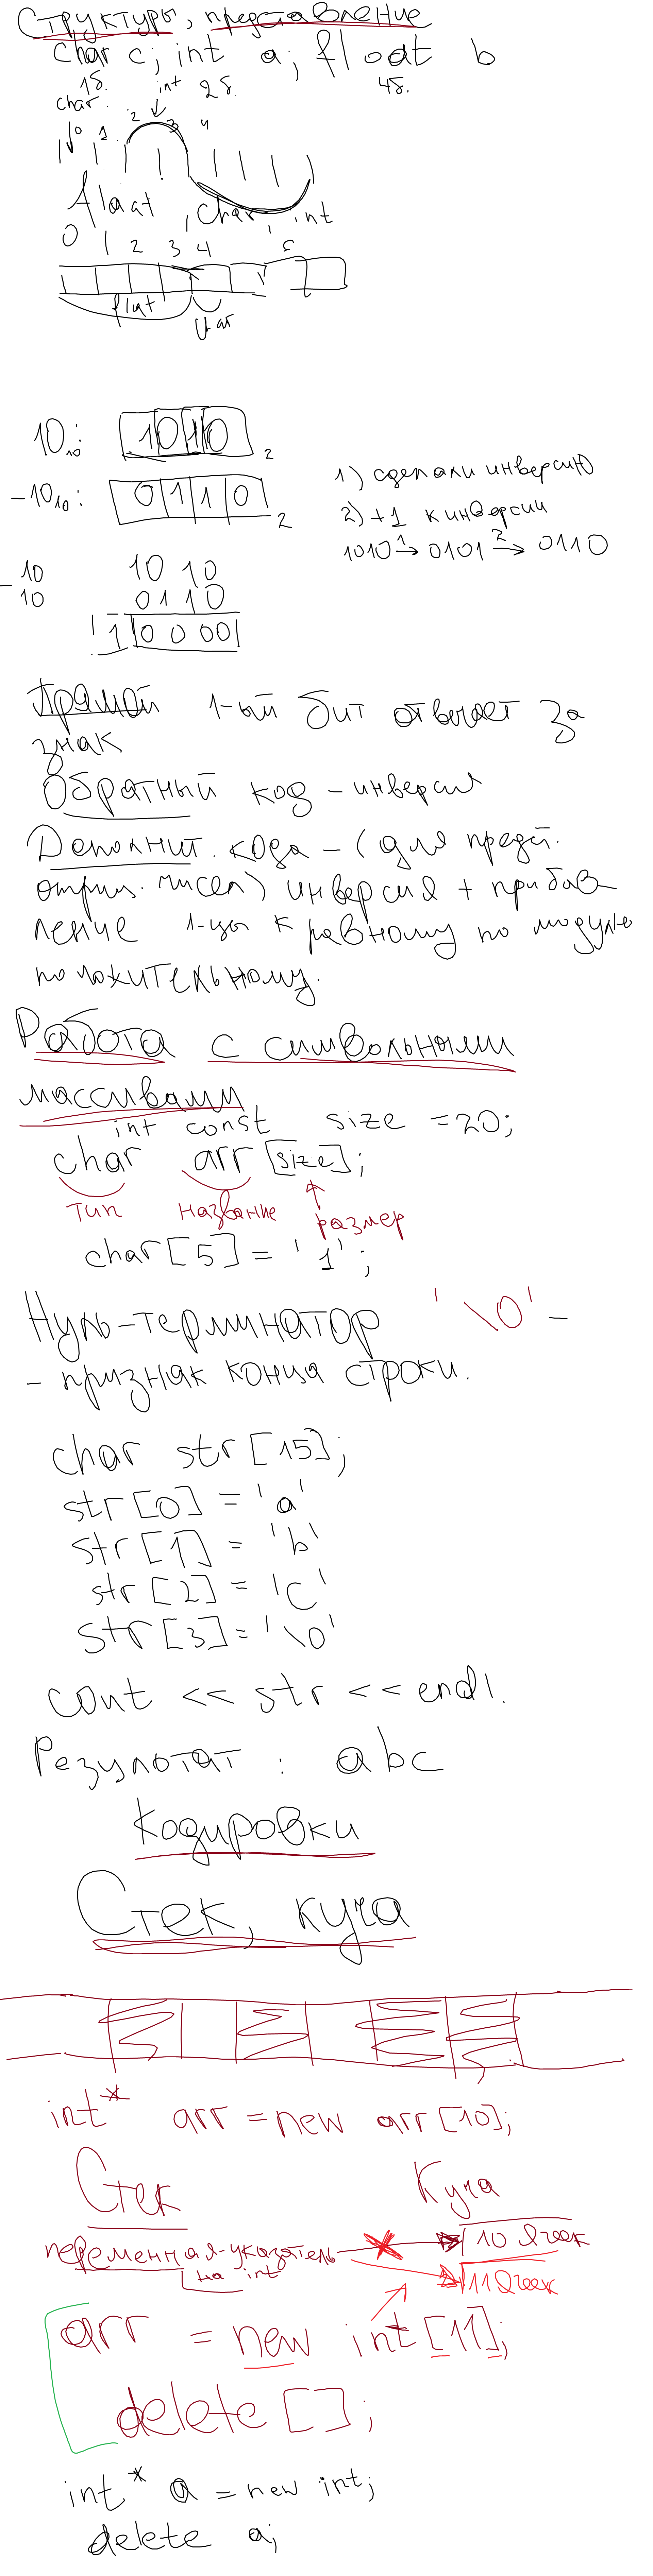 Структуры, представление
char c; int a; float b
1б. int 2б. 4б.
char
0 1 2 3 4
float, char, int
0 1 2 3 4
float
char
10₁₀: 1010 ₂
-10₁₀: 0110 ₂
1) сделали инверсию
2) +1 к инверсии
1010 →1 0101 →2 0110
10 1010
- 10 0110
1 0000
Прямой 1-ый бит отвечает за
знак
Обратный код - инверсия
Дополнит. кода - (для предст.
отриц. чисел) инверсия + прибав
ление 1-цы к равному по модулю
положительному.
Работа с символьными
массивами
int const size = 20;
char arr [size];
тип название размер
char[5] = '1';
Нуль-терминатор '\0' -
- признак конца строки.
char str [15];
str [0] = 'a'
str [1] = 'b'
str [2] = 'c'
str [3] = '\0'
cout << str << endl.
Результат : abc
Кодировки
Стек, куча
int* arr = new arr [10];
Стек Куча
переменная-указатель 10 ячеек
на int 11 ячеек
arr = new int [11];
delete [];
int* a = new int;
delete a;